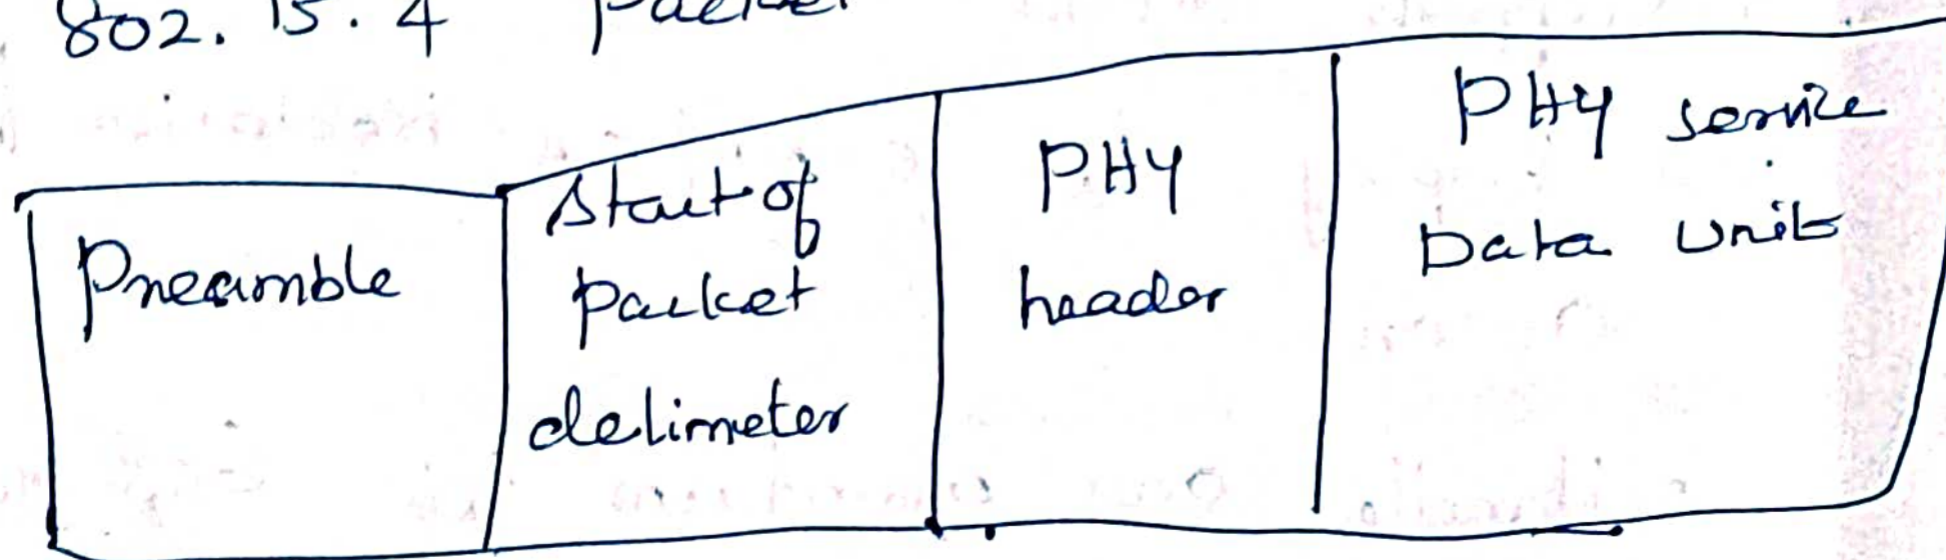 802. 15. 4 Packet
Preamble
Start of
Packet
delimeter
PHY
header
PHY service
Data Unit